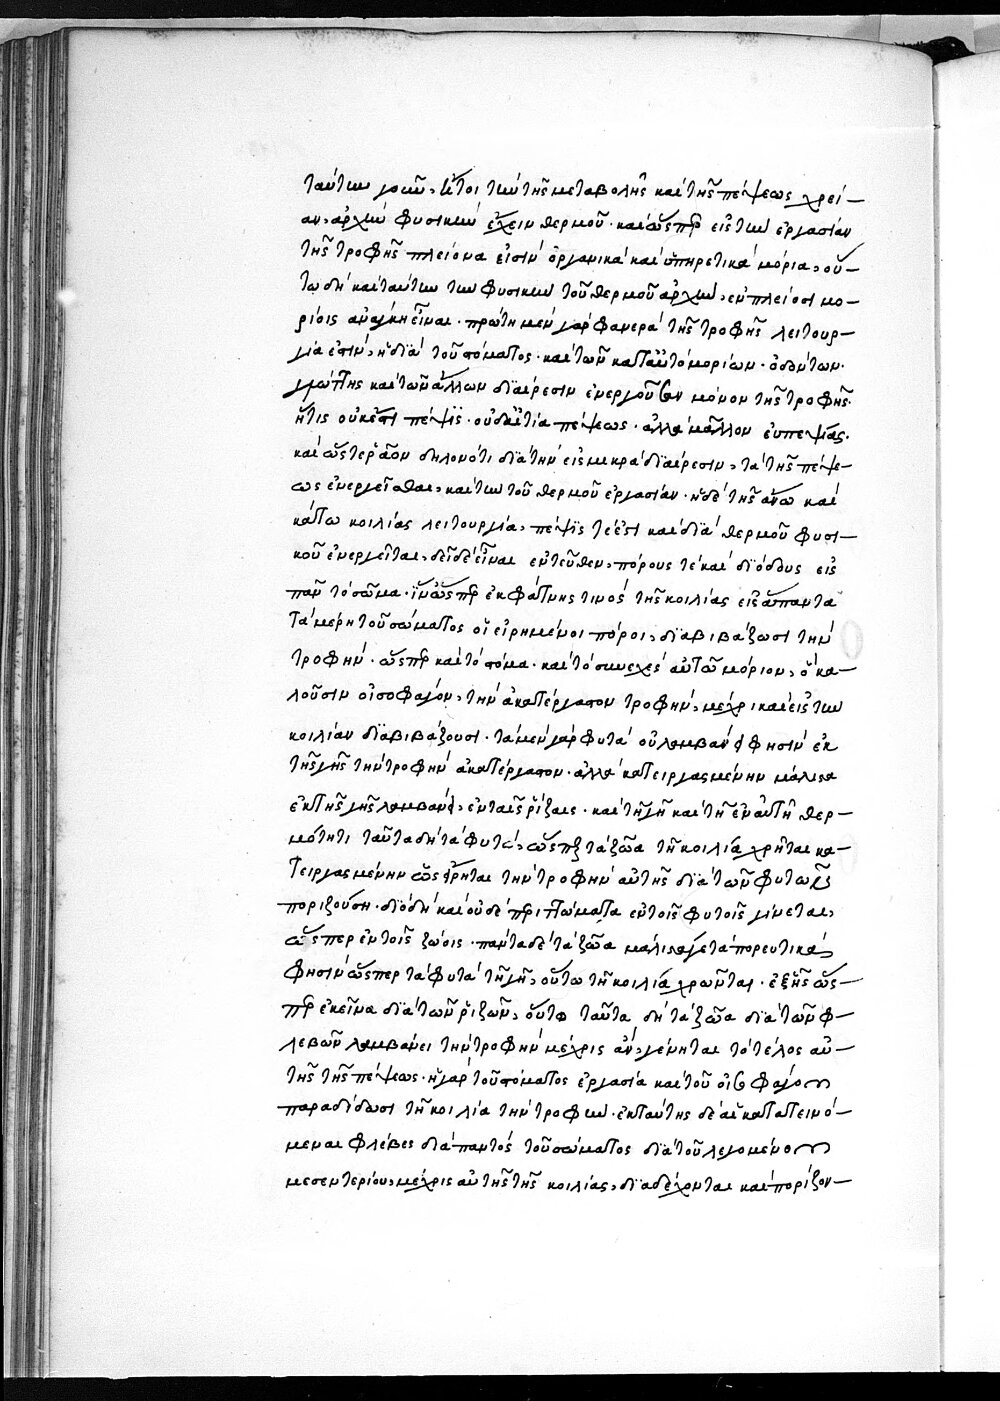 ταύτων γοῦν, ἤτοι τὴν τῆς μεταβολῆς καὶ τῆς πέψεως χρεί-
αν, ἀρχὴν φυσικὴν ἔχειν θερμοῦ· καὶ ὥσπερ εἰς τὴν ἐργασίαν
τῆς τροφῆς πλείονα εἰσὶν ὀργανικὰ καὶ ὑπηρετικὰ μόρια, οὕ-
τω δὴ καὶ ταύτην τὴν φυσικὴν τοῦ θερμοῦ ἀρχὴν, ἐν πλείοσι μο-
ρίοις ἀνάγκη εἶναι· πρώτη μὲν γὰρ φανερὰ τῆς τροφῆς λειτουρ-
γία ἐστὶν, ἡ διὰ τοῦ στόματος· καὶ τῶν κατ' αὐτὸ μορίων· ὀδόντων·
γλώττης καὶ τῶν ἄλλων διαίρεσιν ἐνεργοῦσαν μόνον τῆς τροφῆς·
ἥτις οὐκ ἔστι πέψις· οὐδ' αἰτία πέψεως· ἀλλὰ μᾶλλον εὐπεψίας·
καὶ ὥστε ῥᾷον δηλονότι διὰ τὴν εἰς μικρὰ διαίρεσιν, τὰ τῆς πέψε-
ως ἐνεργεῖσθαι, καὶ τὴν τοῦ θερμοῦ ἐργασίαν· ἡ δὲ τῆς ἄνω καὶ
κάτω κοιλίας λειτουργία, πέψις τέ ἐστι καὶ διὰ θερμοῦ φυσι-
κοῦ ἐνεργεῖται, δεῖ δὲ εἶναι ἐντεῦθεν, πόρους τε καὶ διόδους εἰς
πᾶν τὸ σῶμα· ἵν' ὥσπερ ἐκ φάτνης τινὸς τῆς κοιλίας εἰς ἅπαντα
τὰ μέρη τοῦ σώματος οἱ εἰρημένοι πόροι, διαβιβάζωσι τὴν
τροφὴν· ὥσπερ καὶ τὸ στόμα· καὶ τὸ συνεχὲς αὐτῶ μόριον, ὃ κα-
λοῦσιν οἰσοφάγον, τὴν ἀκατέργαστον τροφὴν, μέχρι καὶ εἰς τὴν
κοιλίαν διαβιβάζουσι· τὰ μὲν γὰρ φυτὰ οὐ λαμβάνει φησὶν ἐκ
τῆς γῆς τὴν τροφὴν ἀκατέργαστον· ἀλλὰ κατειργασμένην μάλιστα
ἐκ τῆς γῆς λαμβάνει, ἐν ταῖς ῥίζαις· καὶ τῇ γῇ καὶ τῇ ἐν αὐτῇ θερ-
μότητι ταῦτα δὴ τὰ φυτὰ, ὥσπερ τὰ ζῶα τῇ κοιλία χρῆται κα-
τειργασμένην ὡς εἴρηται τὴν τροφὴν αὐτῆς διὰ τῶν φυτῶν
ποριζούση· διὸ δὴ καὶ οὐδὲ περιττώματα ἐν τοῖς φυτοῖς γίνεται,
ὥσπερ ἐν τοῖς ζώοις· πάντα δὲ τὰ ζῶα μάλιστά γε τὰ πορευτικὰ
φησὶν ὥσπερ τὰ φυτὰ τῇ γῇ, οὕτω τῇ κοιλία χρῶνται· ἑξῆς ὥσ-
περ ἐκεῖνα διὰ τῶν ῥιζῶν, οὕτω ταῦτα δὴ τὰ ζῶα διὰ τῶν φ-
λεβῶν λαμβάνει τὴν τροφὴν μέχρις ἂν γένηται τὸ τέλος αὐ-
τῆς τῆς πέψεως· ἡ γὰρ τοῦ στόματος ἐργασία καὶ τοῦ οἰσοφάγου
παραδίδωσι τῇ κοιλία τὴν τροφὴν· ἐκ ταύτης δὲ αἱ κατατεινό-
μεναι φλέβες διὰ παντὸς τοῦ σώματος διὰ τοῦ λεγομένου
μεσεντερίου, μέχρις αὐτῆς τῆς κοιλίας, διαδέχονται καὶ πορίζον-